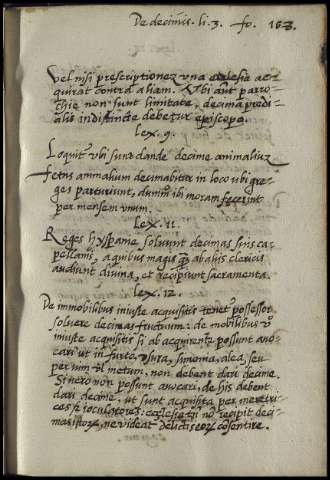 De decimis. li. 3. fo. 163.
Vel nisi prescriptionez vna ecclesia ac-
quirat contra aliam. Vbi aut parro-
chie non sunt limitate, decima predi-
alis indistincte debetur episcopo.
Lex. 9.
Loquit vbi sunt dande decime animaliuz
Fetus animalium decimabitur in loco vbi gre-
ges parturiunt, dummo ibi moram fecerint
per mensem vnum.
Lex. 11.
Reges hyspanie soluunt decimas suis ca-
pellanis, a quibus magis q ab aliis clericis
audiunt diuina, et recipiunt sacramenta.
Lex. 12.
De immobilibus iniuste acquisitis tenet possessor
soluere decimas fructuum: de mobilibus v
iniuste acquisitis si ab acquirente possunt auo-
cari ut in furto, vsura, simonia, alea, seu
per vim vl metum, non debent dari decime
Si vero non possunt auocari, de his debent
dari decime, ut sunt acquisita per meretri-
ces et ioculatores: ecclesia tn no recipit deci-
mas istorz, ne videat delictis eorz cosentire.